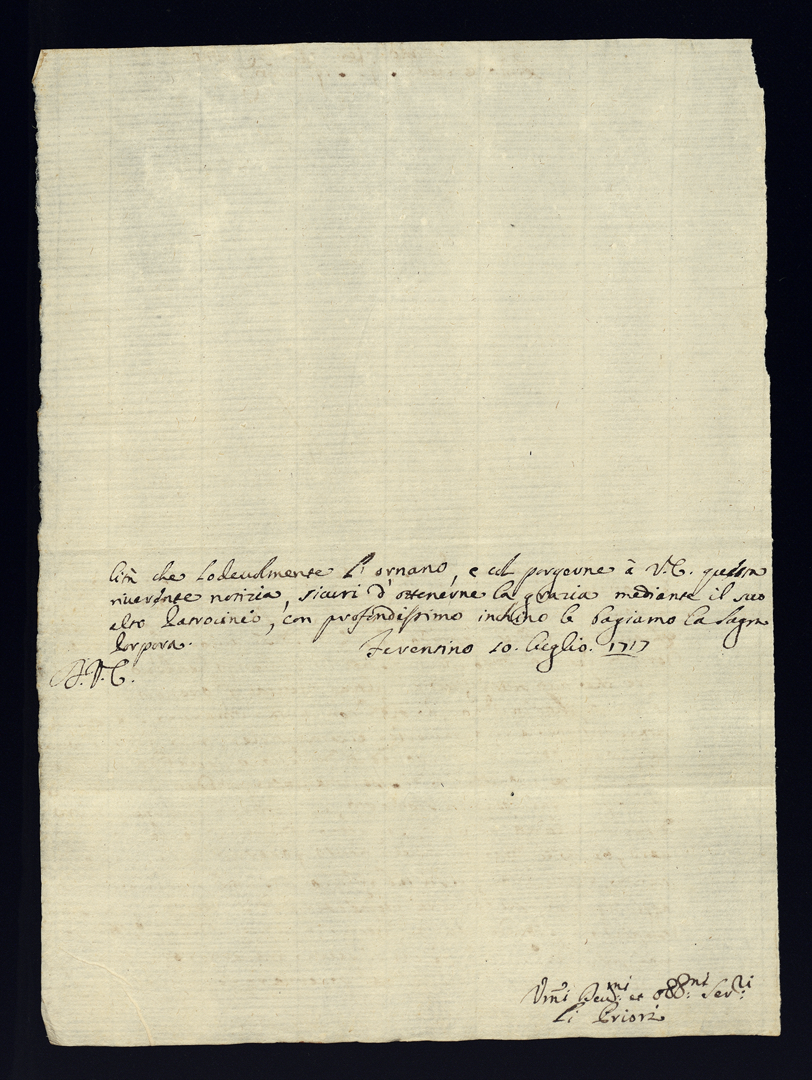 lità che lodevolmente l'ornano, e col porgerne à V.E. questa
riverente notizia, sicuri d'ottenerne la grazia mediante il suo
alto Patrocinio, con profondissimo inchino le bagiamo la Sagra
Porpora. Ferentino 10. luglio. 1717
D.V.E.
Vm̃i Deu.mi et obb.mi Ser.ri
Li Priori